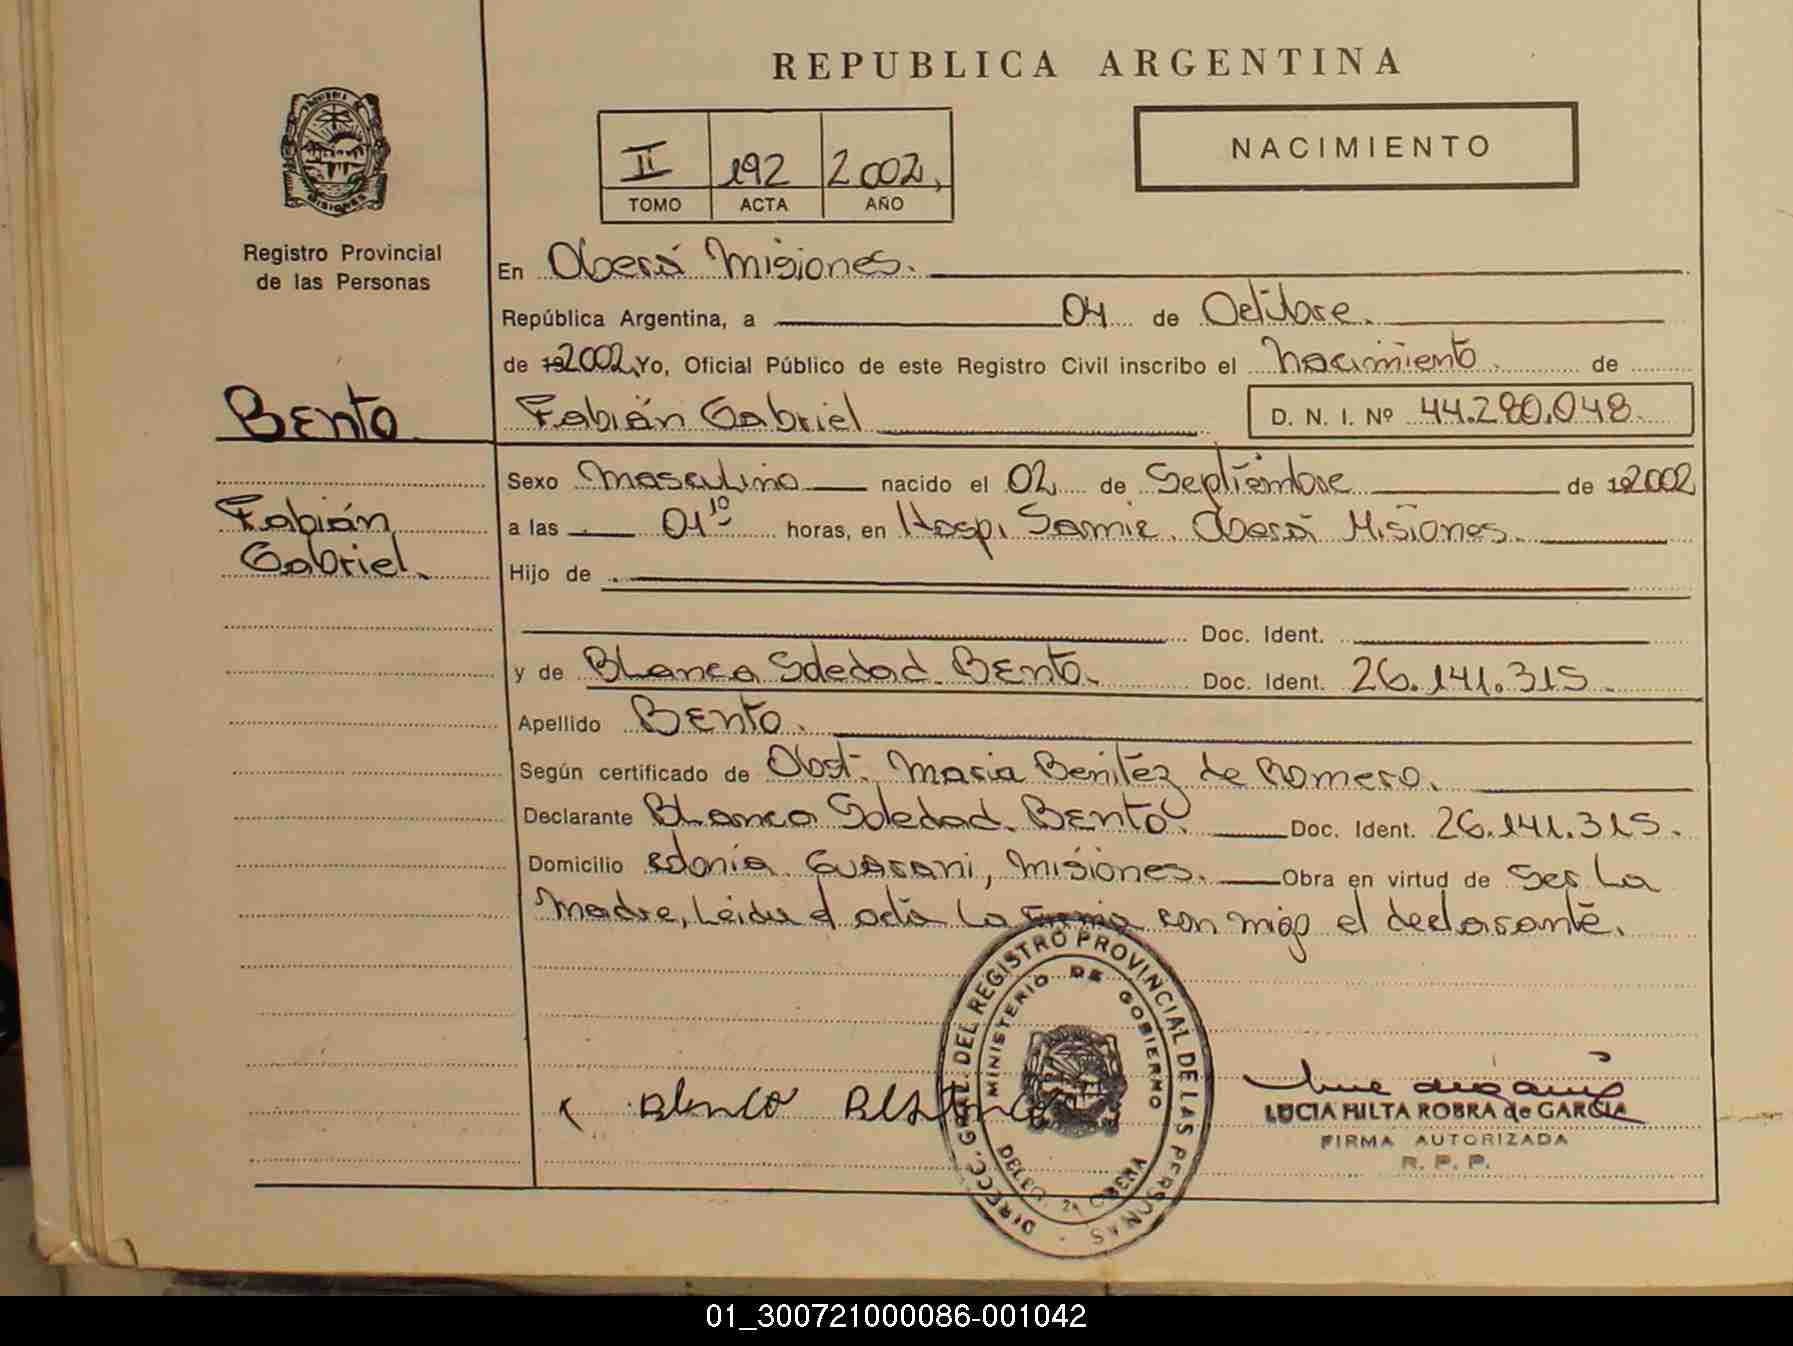 REPUBLICA ARGENTINA
NACIMIENTO
II 192 2002,
TOMO ACTA AÑO
Misiones
Registro Provincial
de las Personas
En Oberá Misiones.
República Argentina, a 04 de Octubre.
de 192002, Yo, Oficial Público de este Registro Civil inscribo el Nacimiento. de
Bento
Fabián Gabriel D. N. I. Nº 44.280.048.
Sexo Masculino nacido el 02 de Septiembre de 192002
Fabián
Gabriel.
a las 01 10 horas, en Hosp. Samic. Oberá Misiones.
Hijo de
Doc. Ident.
y de Blanca Soledad Bento. Doc. Ident. 26.141.315.
Apellido Bento.
Según certificado de Obst. Maria Benitéz de Romero.
Declarante Blanca Soledad Bento. Doc. Ident. 26.141.315.
Domicilio Colonia Guarani, Misiones. Obra en virtud de Ser La
Madre, Leida el acta La Firma con migo el declarante.
DIRECC. GRAL. DEL REGISTRO PROVINCIAL DE LAS PERSONAS
MINISTERIO DE GOBIERNO
OBERA
LUCIA HILTA ROBRA de GARCIA
FIRMA AUTORIZADA
R. P. P.
01_300721000086-001042